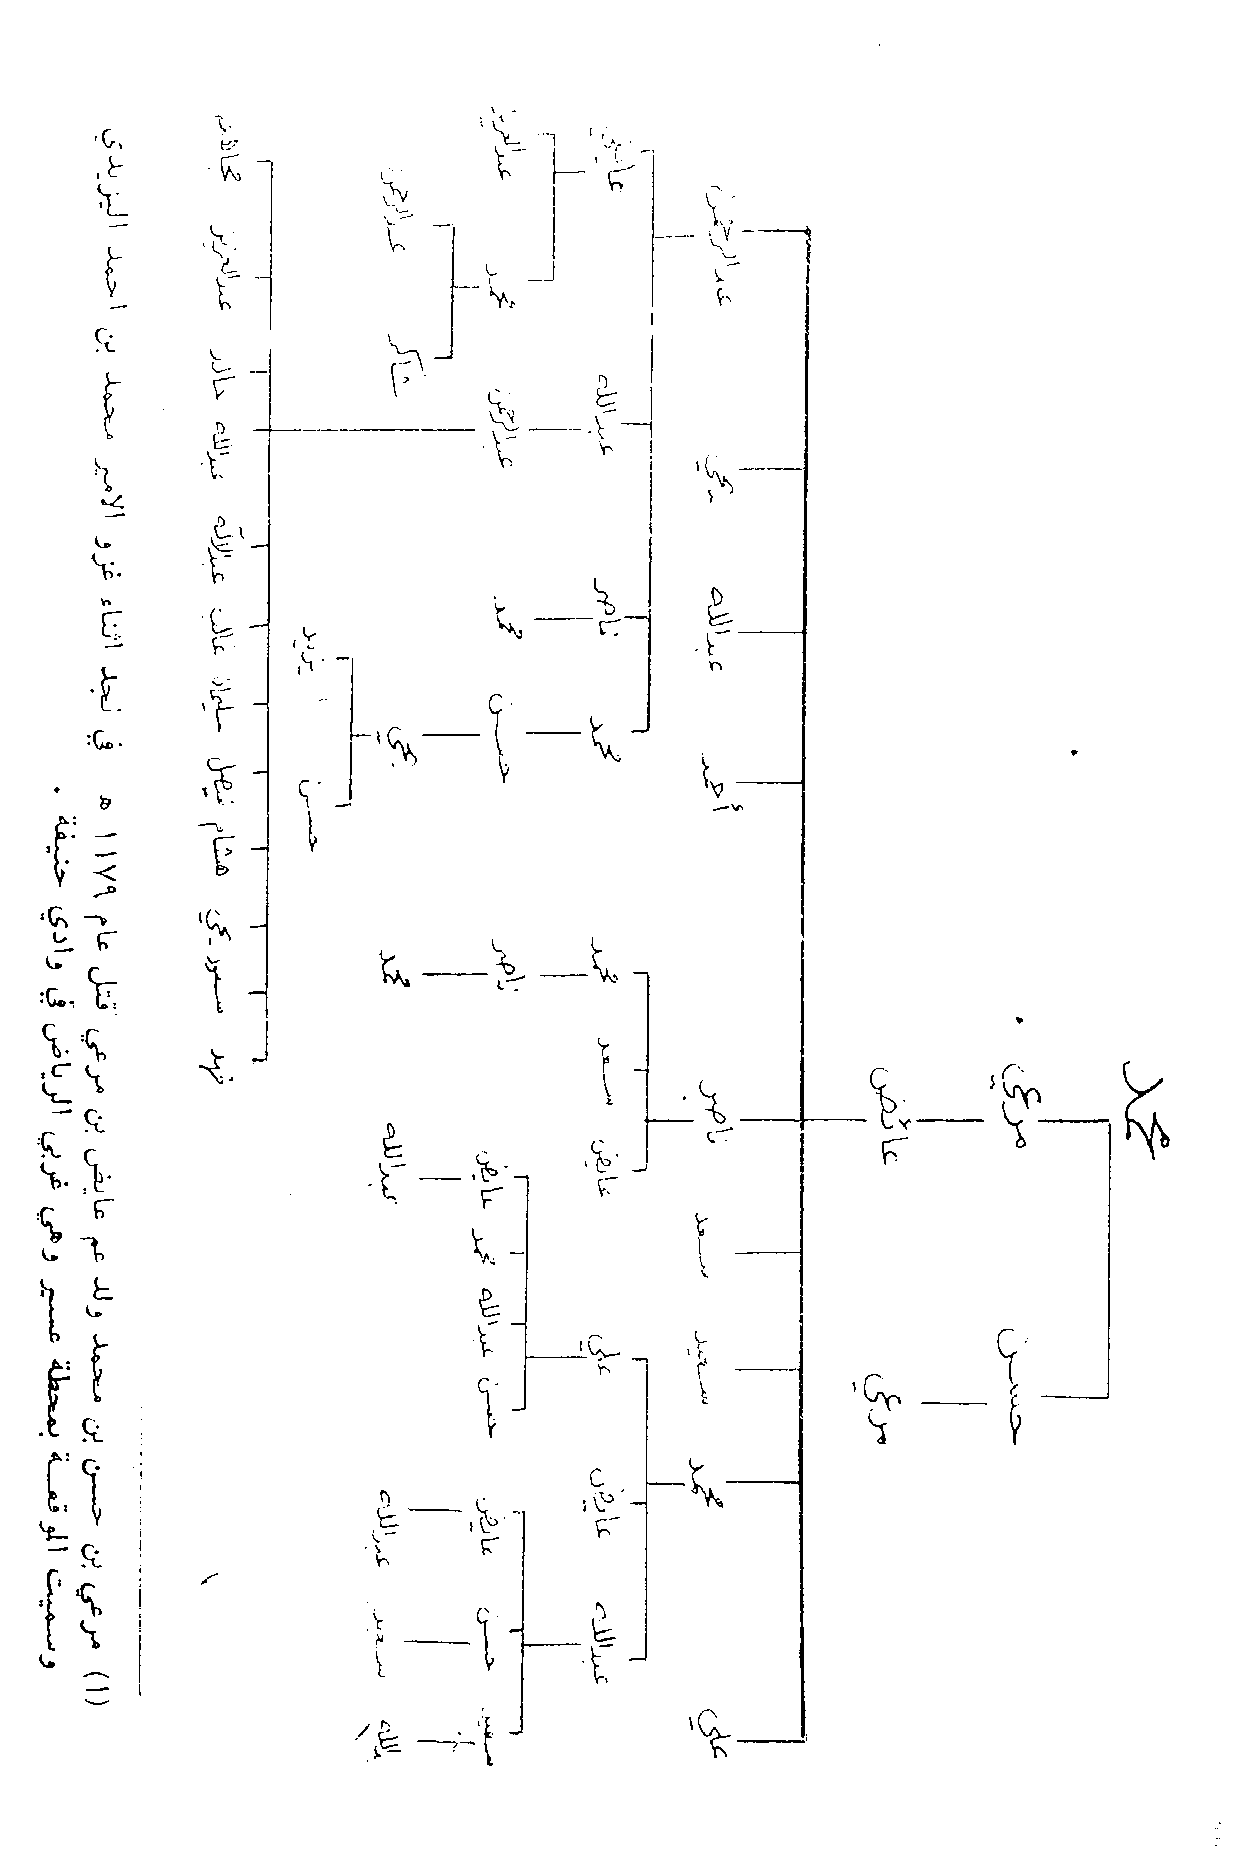 محمد
حسن مرعي
مرعي عائض
علي محمد سعيد سعد ناصر أحمد عبدالله يحي عبدالرحمن
عبدالله عايض علي عايض سعد محمد محمد ناصر عبدالله عايض
سعيد حسن عايض حسن عبدالله محمد عايض ناصر حسن محمد عبدالرحمن محمد عبدالعزيز
سعيد عبدالله عبدالله محمد يحي شاكر عبدالرحمن
حسن يزيد
فهد سعود يحي هشام فيصل سليمان غالب عبدالاله عبدالله خالد عبدالعزيز
(١) مرعي بن حسن بن محمد ولد عم عايض بن مرعي قتل عام ١١٧٩ ه في نجد اثناء غزو الامير محمد بن احمد اليزيدي
وسميت الموقعة بمحطة عسير وهي غربي الرياض في وادي حنيفة .